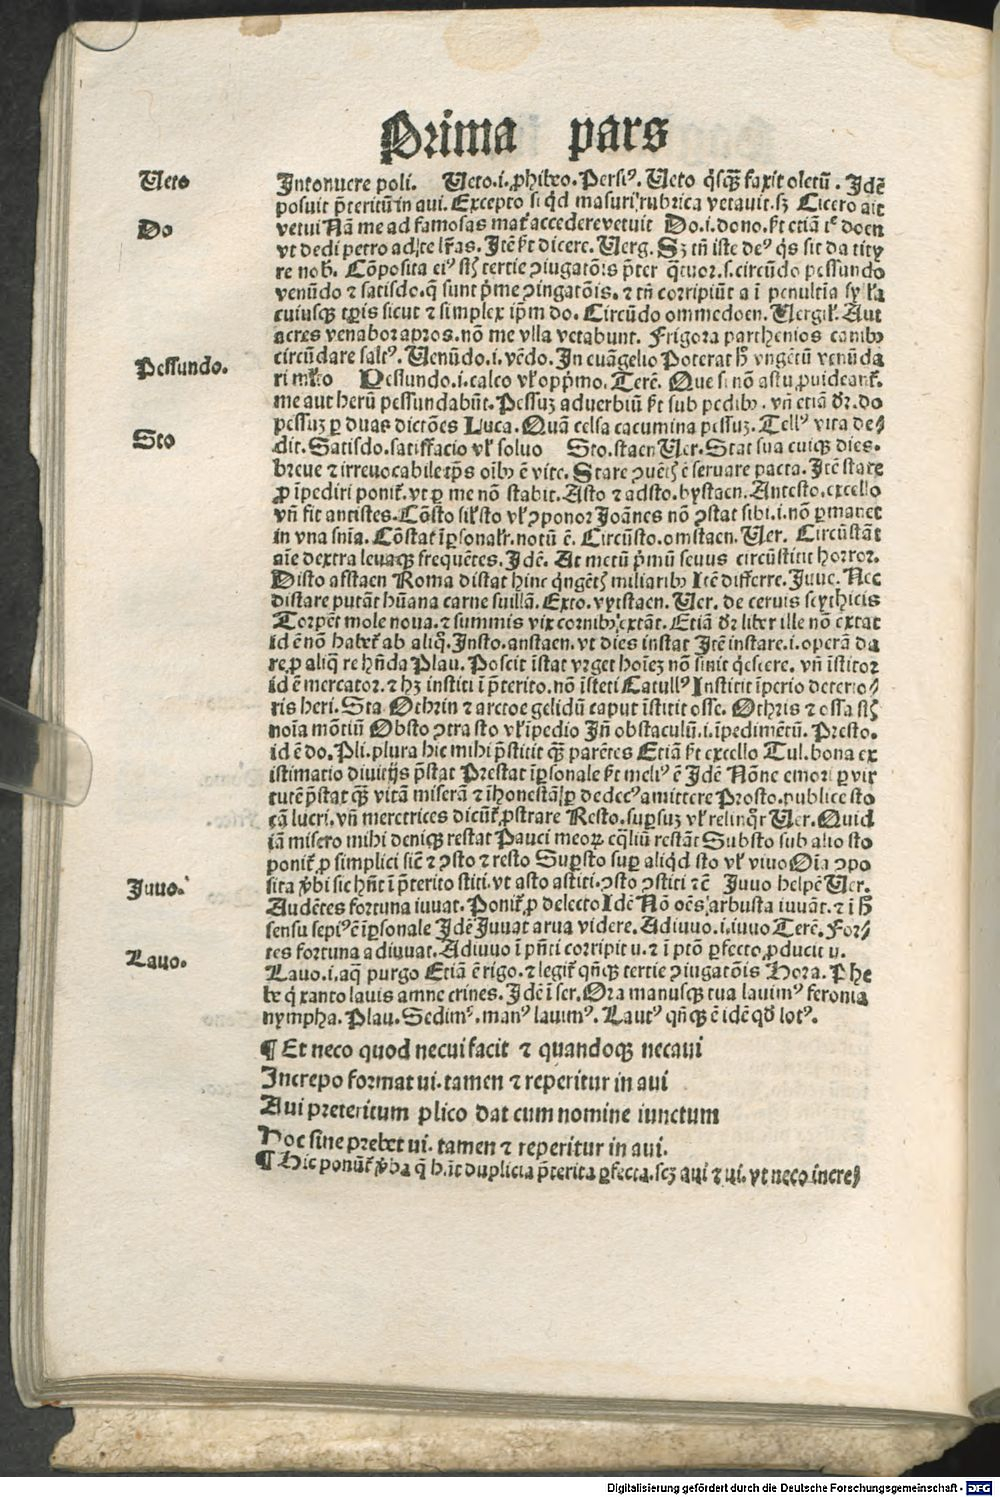 Prima pars
Ueto
Intonuere poli. Ueto.i.ꝓhibeo. Persiꝰ. Ueto q̇sqꝫ faxit oletū. Idē
posuit p̄teritū in aui. Excepto si qd masuri rubrica vetauit.sꝫ Cicero ait
Do
vetui Nā me ad famosas mat accedere vetuit Do.i.dono. etiā doen
vt dedi petro adite lr̄as. Itē dicere. Uerg. Sꝫ tn̄ iste deꝰ q̇s sit da tity
re nob. Cōposita eiꝰ tertie ꝯiugatōis p̄ter q̇tuor.s.circūdo pessundo
venūdo ⁊ satisdo.q̄ sunt p̄me ꝯiugatōis.⁊ tn̄ corripiūt a ī penultīa
cuiusqꝫ tꝑis sicut ⁊ simplex ip̄m do. Circūdo ommedoen. Uergil. Aut
acres venabor apros.nō me vlla vetabunt. Frigora parthenios canibꝫ
circūdare saltꝰ. Uenūdo.i.vēdo. In euāgelio Poterat vngētū venūda
Pessundo.
ri mlto Pessundo.i.calco vl opp̄mo. Terē. Que si nō astu ꝓuideant.
me aut herū pessundabūt. Pessuꝫ aduerbiū sub pedibꝫ. vn̄ etiā dr̄.do
pessuꝫ ꝑ duas dictōes Luca. Quā celsa cacumina pessuꝫ. Tellꝰ vita de⸗
Sto
dit. Satisdo.satisfacio vl soluo Sto.staen Uer. Stat sua cuiqꝫ dies.
breue ⁊ irreuocabile tp̄s oībꝫ ē vite. Stare ē seruare pacta. Itē stare
ꝓ īpediri ponit.vt ꝑ me nō stabit. Asto ⁊ adsto.bystaen. Antesto.excello
vn̄ fit antistes. Cōsto sisto vl ꝯponor Joānes nō ꝯstat sibi.i.nō ꝑmanet
in vna snīa. Cōstat īꝑsonalr.notū ē. Circūsto.omstaen. Uer. Circūstāt
aīe dextra leuaqꝫ frequētes. Idē. At metū p̄mū seuus circūstitit horror.
Disto afstaen Roma distat hinc q̇ngētis miliaribꝫ Itē differre. Juue. Nec
distare putāt hūana carne suillā. Exto.vytstaen. Uer. de ceruis scythicis
Torpēt mole noua.⁊ summis vix cornibꝫ extāt. Etiā dr̄ liber ille nō extat
id ē nō habet ab aliq̇. Insto.anstaen.vt dies instat Itē instare.i.operā da
re ꝓ aliq̄ re hn̄da Plau. Poscit īstat vrget hoīeꝫ nō sinit q̇escere. vn̄ īstitor
id ē mercator.⁊ hꝫ institi ī p̄terito.nō īsteti Catullꝰ Institit īperio deterio⸗
ris heri. Sta Othrin ⁊ arctoe gelidū caput īstitit osse. Othris ⁊ ossa
noīa mōtiū Obsto ꝯtra sto vl īpedio In̄ obstaculū.i.īpedimētū. Presto.
id ē do. Pli. plura hic mihi p̄stitit qꝫ parētes Etiā excello Tul.bona ex
istimatio diuitijs p̄stat Prestat īꝑsonale meliꝰ ē Idē Nōne emori ꝑ vir
tutē p̄stat qꝫ vitā miserā ⁊ īhonestā ꝑ dedecꝰ amittere Prosto.publice sto
cā lucri.vn̄ meretrices dicūt ꝓstrare Resto.suꝑsuꝫ vl relinqr Uer. Quid
iā misero mihi deniqꝫ restat Pauci meoꝝ eq̄liū restāt Substo sub alio sto
ponit ꝓ simplici sicē ⁊ ꝯsto ⁊ resto Suꝑsto suꝑ aliqd sto vl viuo Oīa ꝯpo
Juuo.
sita ꝟbi sic hn̄t ī p̄terito stiti.vt asto astiti.ꝯsto ꝯstiti ⁊c̄ Juuo helpē Uer.
Audētes fortuna iuuat. Ponit ꝓ delecto Idē Nō oēs arbusta iuuāt.⁊ ī
sensu sepiꝰ ē īꝑsonale Idē Juuat arua videre. Adiuuo.i.iuuo Terē. For⸗
Lauo.
tes fortuna adiuuat. Adiuuo ī pn̄ti corripit u.⁊ ī ptō ꝑfecto ꝓducit u.
Lauo.i.aq̄ purgo Etiā ē rigo.⁊ legit qn̄qꝫ tertie ꝯiugatōis Hora. Phe
be q̇ xanto lauis amne crines. Idē ī ser. Ora manusqꝫ tua lauimꝰ feronia
nympha. Plau. Sedimꝰ.manꝰ lauimꝰ. Lautꝰ qn̄qꝫ ē idē qd lotꝰ.
¶ Et neco quod necui facit ⁊ quandoqꝫ necaui
Increpo format ui.tamen ⁊ reperitur in aui
Aui preteritum plico dat cum nomine iunctum
Hoc sine prebet ui.tamen ⁊ reperitur in aui.
¶ Hic ponūt ꝟba q̄ hn̄t duplicia p̄terita ꝑfecta.scꝫ aui ⁊ ui.vt neco incre⸗
Digitalisierung gefördert durch die Deutsche Forschungsgemeinschaft - DFG